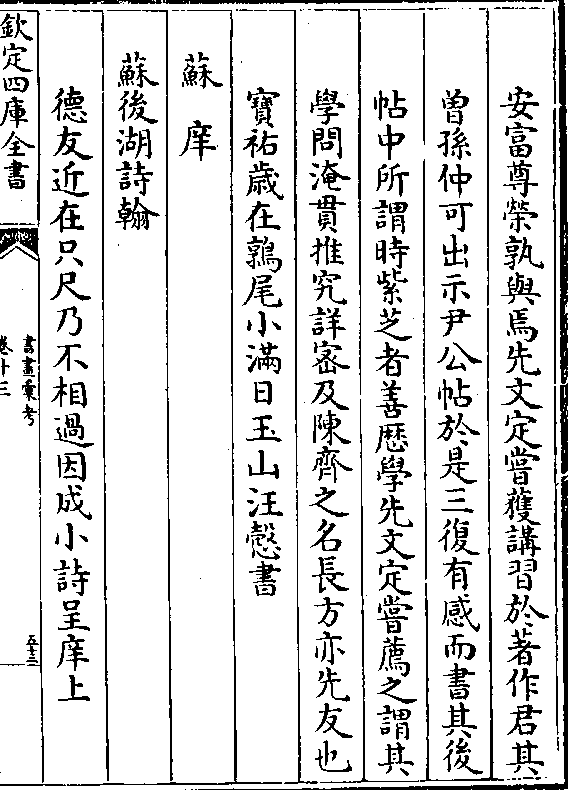 安富尊榮孰與焉先文定嘗獲講習於著作君其
曾孫仲可出示尹公帖於是三復有感而書其後
帖中所謂時紫芝者善歷學先文定嘗薦之謂其
學問淹貫推究詳密及陳齊之名長方亦先友也
寶祐歲在鶉尾小滿日玉山汪愨書
蘇庠
蘇後湖詩翰
德友近在只尺乃不相過因成小詩呈庠上
欽定四庫全書
書畫彙考
卷十三
五十三